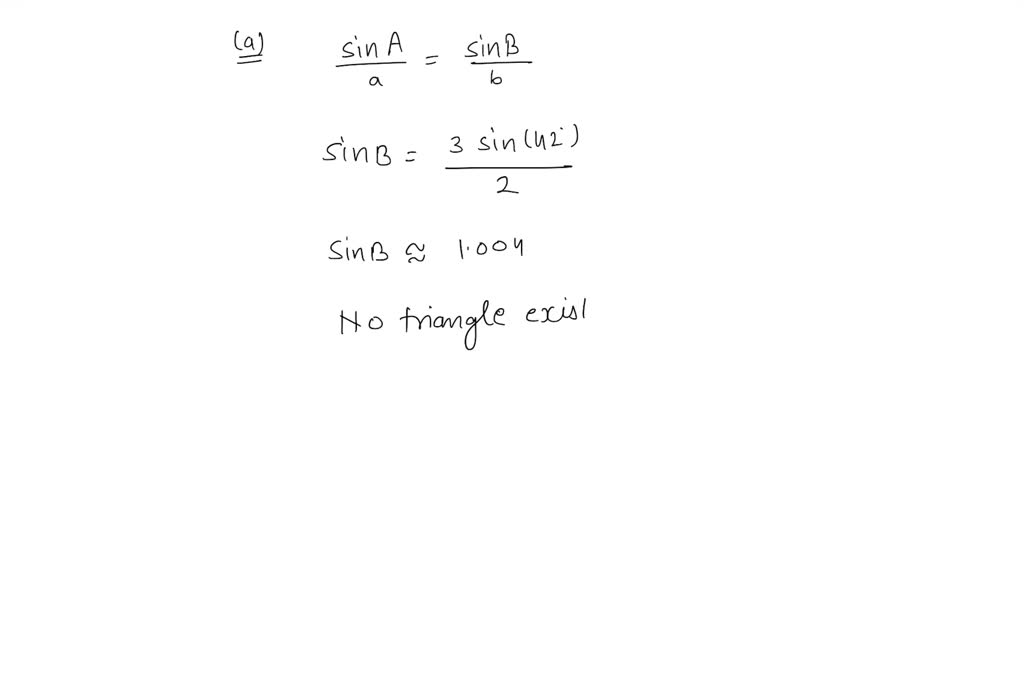 (a) sin A / a = sin B / b
sin B = 3 sin(42°) / 2
sin B ≈ 1.004
No triangle exist